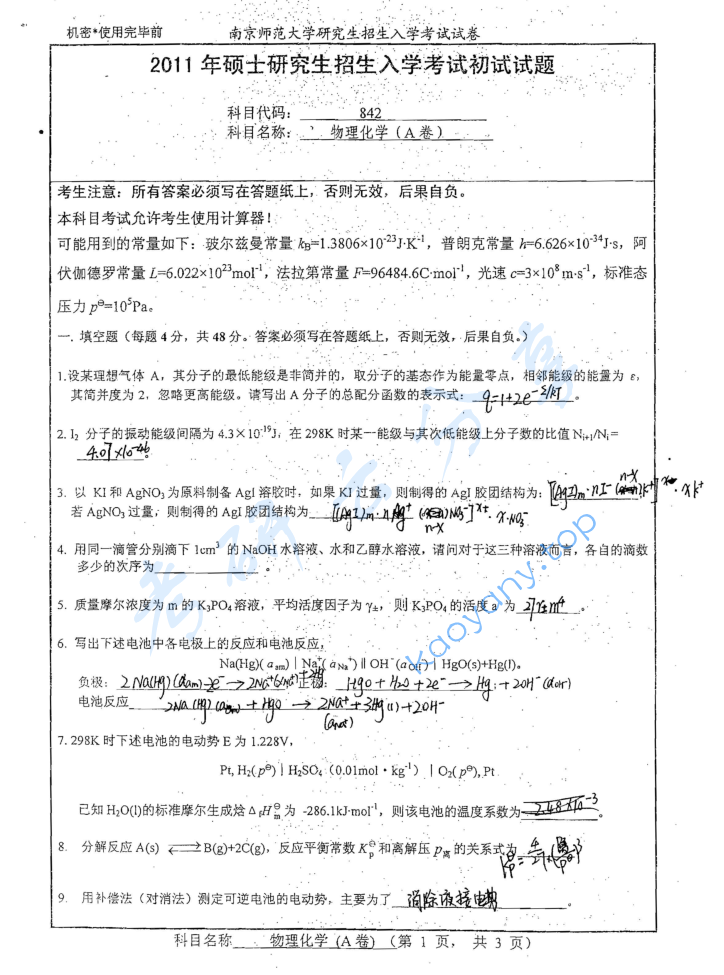 机密*使用完毕前 南京师范大学研究生招生入学考试试卷
2011 年硕士研究生招生入学考试初试试题
科目代码: 842
科目名称: 物理化学(A 卷)
考生注意:所有答案必须写在答题纸上,否则无效,后果自负。
本科目考试允许考生使用计算器!
可能用到的常量如下:玻尔兹曼常量 kB=1.3806×10⁻²³J·K⁻¹,普朗克常量 h=6.626×10⁻³⁴J·s,阿
伏伽德罗常量 L=6.022×10²³mol⁻¹,法拉第常量 F=96484.6C·mol⁻¹,光速 c=3×10⁸m·s⁻¹,标准态
压力 p⊖=10⁵Pa。
一. 填空题(每题 4 分,共 48 分。答案必须写在答题纸上,否则无效,后果自负。)
1.设某理想气体 A,其分子的最低能级是非简并的,取分子的基态作为能量零点,相邻能级的能量为 ε,
其简并度为 2,忽略更高能级。请写出 A 分子的总配分函数的表示式: q=1+2e^(-ε/kT) 。
2. I₂ 分子的振动能级间隔为 4.3×10⁻¹⁹J,在 298K 时某一能级与其次低能级上分子数的比值 Nᵢ₊₁/Nᵢ=
4.07×10⁻⁴⁶
3. 以 KI 和 AgNO₃ 为原料制备 AgI 溶胶时,如果 KI 过量,则制得的 AgI 胶团结构为: [(AgI)m·nI⁻ (n-x)K⁺]ˣ⁻·xK⁺
若 AgNO₃ 过量,则制得的 AgI 胶团结构为 [(AgI)m·nAg⁺ (n-x)NO₃⁻]ˣ⁺·xNO₃⁻
4. 用同一滴管分别滴下 1cm³ 的 NaOH 水溶液、水和乙醇水溶液,请问对于这三种溶液而言,各自的滴数
多少的次序为 。
5. 质量摩尔浓度为 m 的 K₃PO₄ 溶液,平均活度因子为 γ±,则 K₃PO₄ 的活度 a 为 27γ±⁴m⁴ 。
6. 写出下述电池中各电极上的反应和电池反应,
Na(Hg)( a am) | Na⁺( a Na⁺) ‖ OH⁻(a OH⁻) | HgO(s)+Hg(l)。
负极: 2Na(Hg)(a am)-2e⁻→2Na⁺(a Na⁺)+2Hg 正极: HgO+H₂O+2e⁻→Hg+2OH⁻(a OH⁻)
电池反应 2Na(Hg)(a am)+HgO→2Na⁺(a Na⁺)+3Hg(l)+2OH⁻
7. 298K 时下述电池的电动势 E 为 1.228V,
Pt, H₂(p⊖) | H₂SO₄(0.01mol·kg⁻¹) | O₂(p⊖), Pt
已知 H₂O(l)的标准摩尔生成焓 ΔfH⊖m 为 -286.1kJ·mol⁻¹,则该电池的温度系数为 2.48×10⁻³ 。
8. 分解反应 A(s) ⇌ B(g)+2C(g),反应平衡常数 K⊖p 和离解压 p离 的关系式为 K⊖p=4/27(p离/p⊖)³
9. 用补偿法(对消法)测定可逆电池的电动势,主要为了 消除液接电势 。
科目名称 物理化学 (A 卷) (第 1 页, 共 3 页)
考研云分享
kaoyany.top